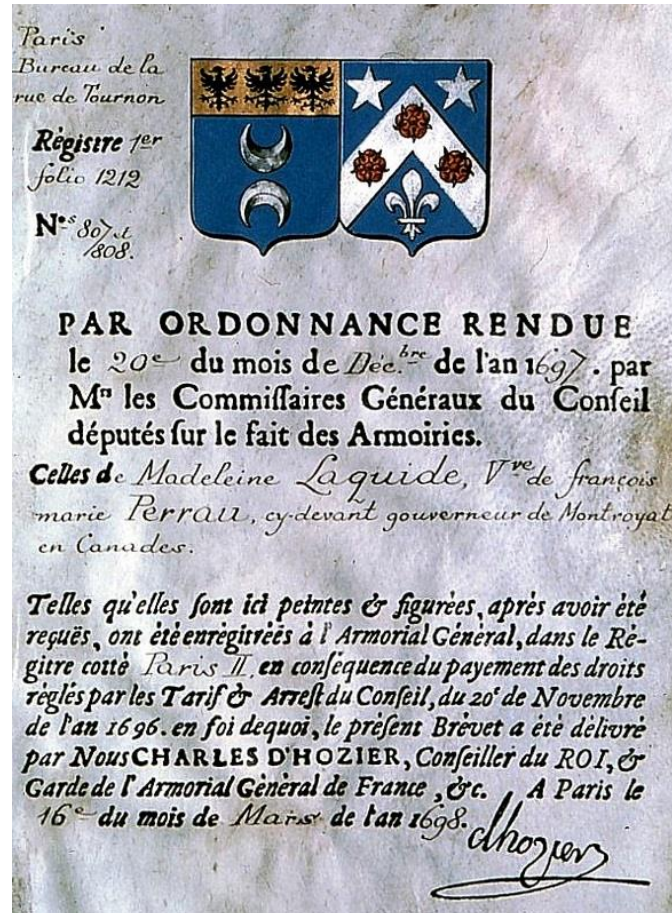 Paris
Bureau de la
rue de Tournon
Règistre 1er
folio 1212
Nos 807 et
1808.
PAR ORDONNANCE RENDUE
le 20e du mois de Déc.bre de l'an 1697. par
Mrs les Commiſſaires Généraux du Conſeil
députés ſur le fait des Armoiries.
Celles de Madeleine Laguide, Vve de françois
marie Perrau, cy-devant gouverneur de Montroyal
en Canades.
Telles qu'elles ſont ici peintes & figurées, après avoir été
reçuës, ont été enrégitrées à l'Armorial Général, dans le Ré-
gitre cotté Paris II, en conſéquence du payement des droits
réglés par les Tarif & Arreſt du Conſeil, du 20e de Novembre
de l'an 1696. en foi dequoi, le préſent Brévet a été délivré
par Nous CHARLES D'HOZIER, Conſeiller du ROI, &
Garde de l'Armorial Général de France, &c. A Paris le
16e du mois de Mars de l'an 1698.
dhozier